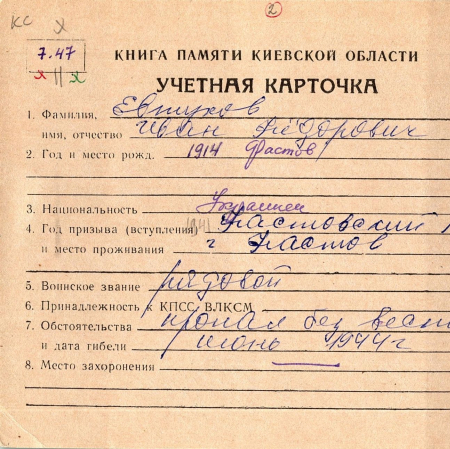 КС X
2
7.47
X || X
КНИГА ПАМЯТИ КИЕВСКОЙ ОБЛАСТИ
УЧЕТНАЯ КАРТОЧКА
1. Фамилия, Евтухов
имя, отчество Иван Фёдорович
2. Год и место рожд. 1914 Фастов
3. Национальность Украинец
4. Год призыва (вступления) 1941 Фастовский
и место проживания г Фастов
5. Воинское звание рядовой
6. Принадлежность к КПСС, ВЛКСМ
7. Обстоятельства пропал без вест
и дата гибели июнь 1944 г
8. Место захоронения —